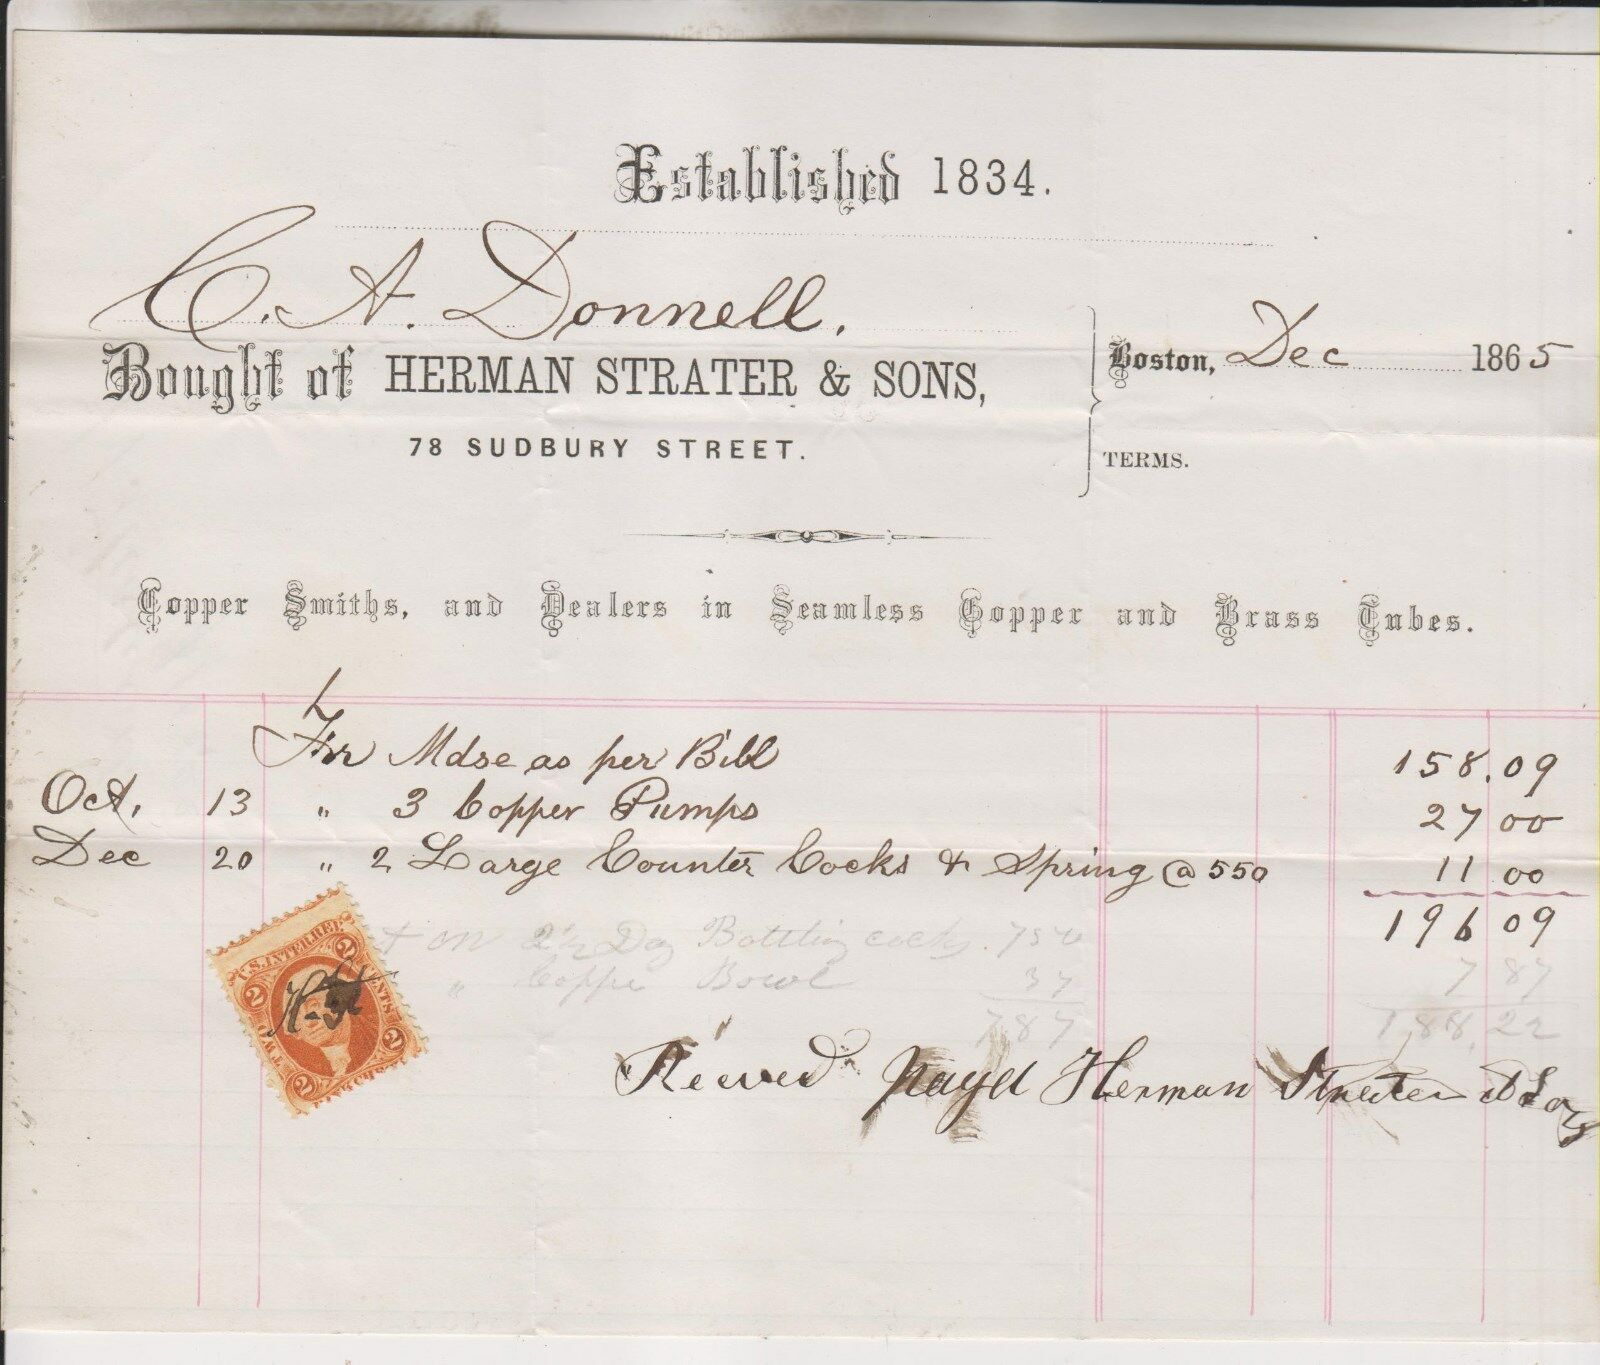 Established 1834.
C. A. Donnell.
Bought of HERMAN STRATER & SONS,
78 SUDBURY STREET.
Boston, Dec 1865
TERMS.
Copper Smiths, and Dealers in Seamless Copper and Brass Tubes.
For Mdse as per Bill 158.09
Oct, 13 " 3 Copper Pumps 27 00
Dec 20 " 2 Large Counter Cocks & Spring @ 550 11 00
196 09
2 1/2 Doz Bottling cocks. 750
" Coppe Bowl 37
7 87
787
188,22
U.S. INTER. REV.
2 CENTS 2
TWO
H. St
Recived payt Herman Strater & Sons